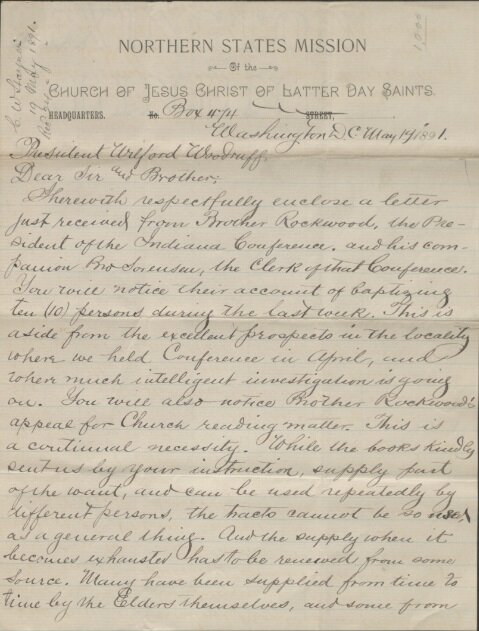 C. W. Stayner
19 May 1891.
1,00
NORTHERN STATES MISSION
Of the
CHURCH OF JESUS CHRIST OF LATTER DAY SAINTS.
HEADQUARTERS. No. Box 474 STREET,
Washington DC May 19 1891.
President Wilford Woodruff.
Dear Sir and Brother;
I herewith respectfully enclose a letter
just received from Brother Rockwood, the Pre-
sident of the Indiana Conference. and his com-
panion Bro Sorensen, the Clerk of that Conference.
You will notice their account of baptizing
ten (10) persons during the last week. This is
aside from the excellent prospects in the locality
where we held Conference in April, and
where much intelligent investigation is going
on. You will also notice Brother Rockwood's
appeal for Church reading matter. This is
a continual necessity. While the books kindly
sent us by your instruction, supply part
of the want, and can be used repeatedly by
different persons, the tracts cannot be so used,
as a general thing. And the supply when it
becomes exhausted has to be renewed from some
source. Many have been supplied from time to
time by the Elders themselves, and some from